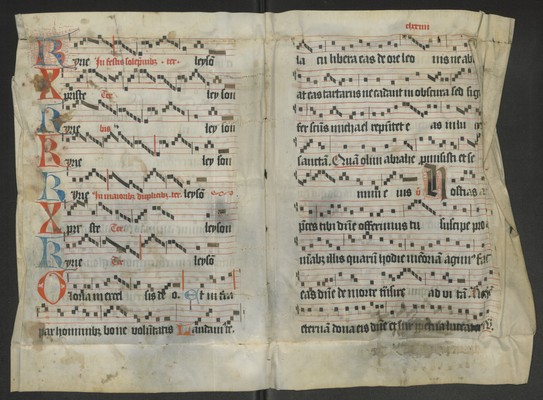 yrie In festis solempnibz. ter. leysō
X priste Ter ley son
yrie leyson
yrie leyson
yrie In maioribz duplicibz. ter. leysō
X pri ste Ter leyson
yrie Ter leysō
loria in excel sis de o. Et in tra
pax hominibz bone voluntatis Laudam te.
clxxviii
la cū libera eas de ore leo nis ne ab
at eas tartarus ne cadant in obscura sed sig
fer sc̄us michael rep̄ntet e as in lu cē
sanctā. Quā olim abrahe promisisti et se
mini e ius. Hostias
p̄ces tibi dn̄e offerimus tu suscipe pro a
mabz illis quarū hodie memoriā agim' fac
eas dn̄e de morte t̄nsire ad vi tā.
eternā dona eis dn̄e et lux p̄petua luceat eis